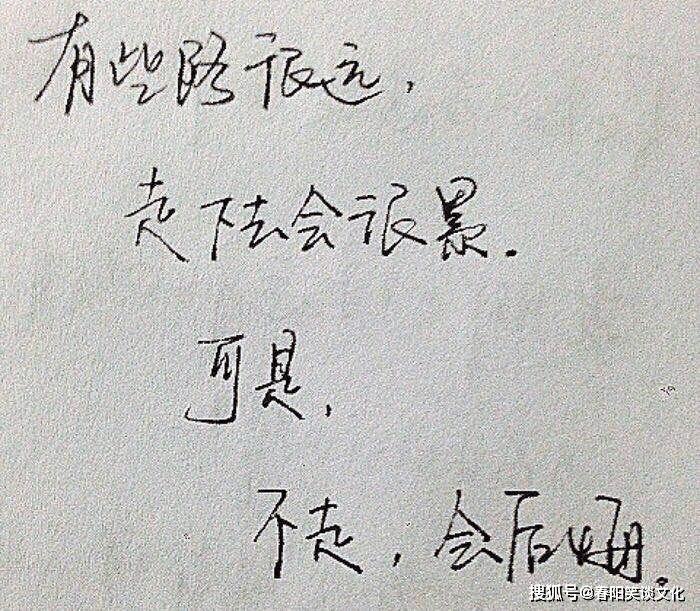 有些路很远，
走下去会很累.
可是，
不走，会后悔.
搜狐号@春阳笑谈文化